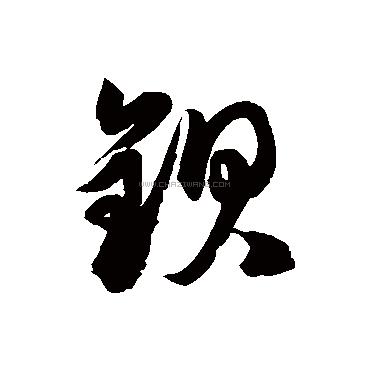 鋇
WWW.CHAZIWANG.COM